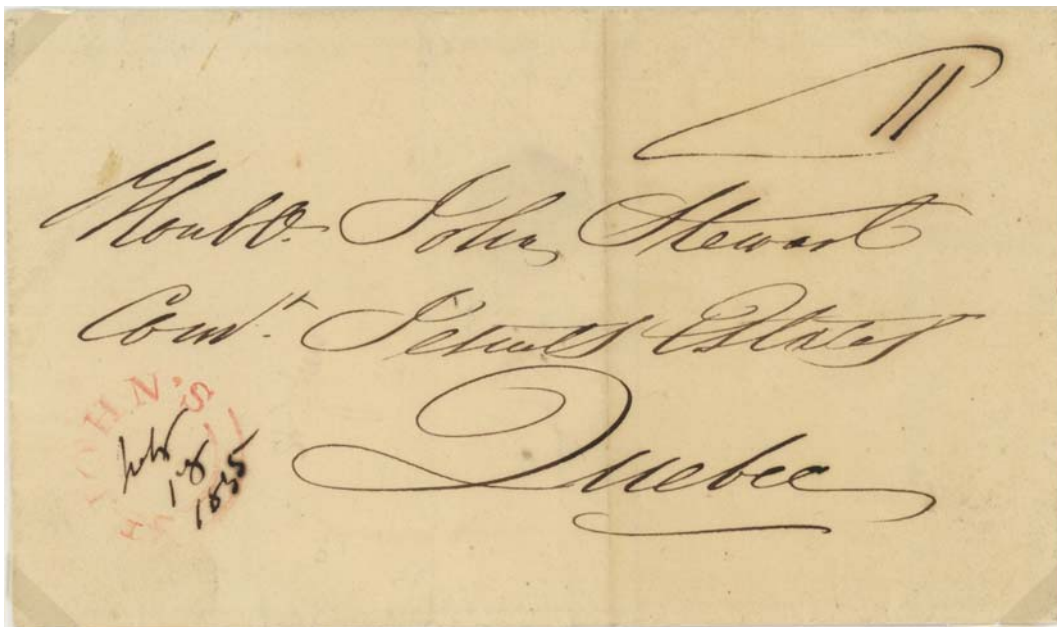 11
Honble. John Stewart
Comr. Jesuits Estates
Quebec
JOHN'S
1835